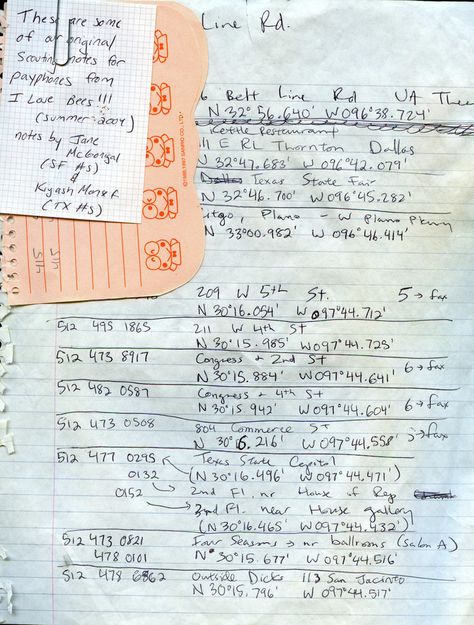 These are some
of our original
Scouting notes for
payphones from
I Love Bees!!!
(summer 2004)
notes by Jane
McGonigal
(SF #s)
&
Kiyash Monsef
(TX #s)
©1988, 1997 SANRIO CO., LTD.
514
514
Line Rd.
Belt Line Rd UA
N 32° 56.640' W 096° 38.724'
Kettle Restaurant
111 E RL Thornton Dallas
N 32° 47.683' W 096° 42.079'
Dallas Texas State Fair
N 32° 46.700' W 096° 45.282'
Plano - W Plano Pkwy
N 33° 00.982' W 096° 46.414'
209 W 5th St. 5 → fax
N 30° 16.054' W 097° 44.712'
512 495 1865 211 W 4th St
N 30° 15.985' W 097° 44.725'
512 473 8917 Congress & 2nd St 6 → fax
N 30° 15.884' W 097° 44.641'
512 482 0587 Congress & 4th St 6 → fax
N 30° 15 942' W 097° 44.604'
512 473 0508 804 Commerce St → fax
N 30° 16.216' W 097° 44.558'
512 477 0295 Texas State Capital
0132 (N 30° 16.496' W 097° 44.471')
0152 2nd Fl. nr House of Rep
2nd Fl. near House gallery
(N 30° 16.465' W 097° 44.432')
512 473 0821 Four Seasons → nr ballrooms (Salon A)
478 0101 N 30° 15.677' W 097° 44.516'
512 478 6862 Outside Dicks 113 San Jacinto
N 30° 15.796' W 097° 44.517'